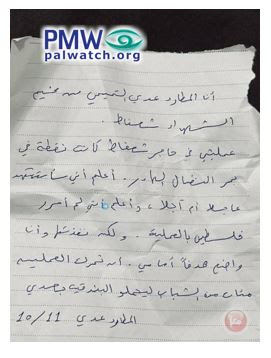 PMW
palwatch.org
أنا المطارد عدي التميمي من مخيم
الشهداء شعفاط .
عمليتي في حاجز شعفاط كانت نقطة في
بحر النضال الهادر . أعلم أني سأستشهد
عاجلا أم آجلا ، وأعلم أنني لم أحرر
فلسطين بالعملية . ولكن نفذتها وأنا
واضع هدفا أمامي . أن تحرك العملية
مئات من الشباب ليحملو البندقية بعدي
المطارد عدي 10/11